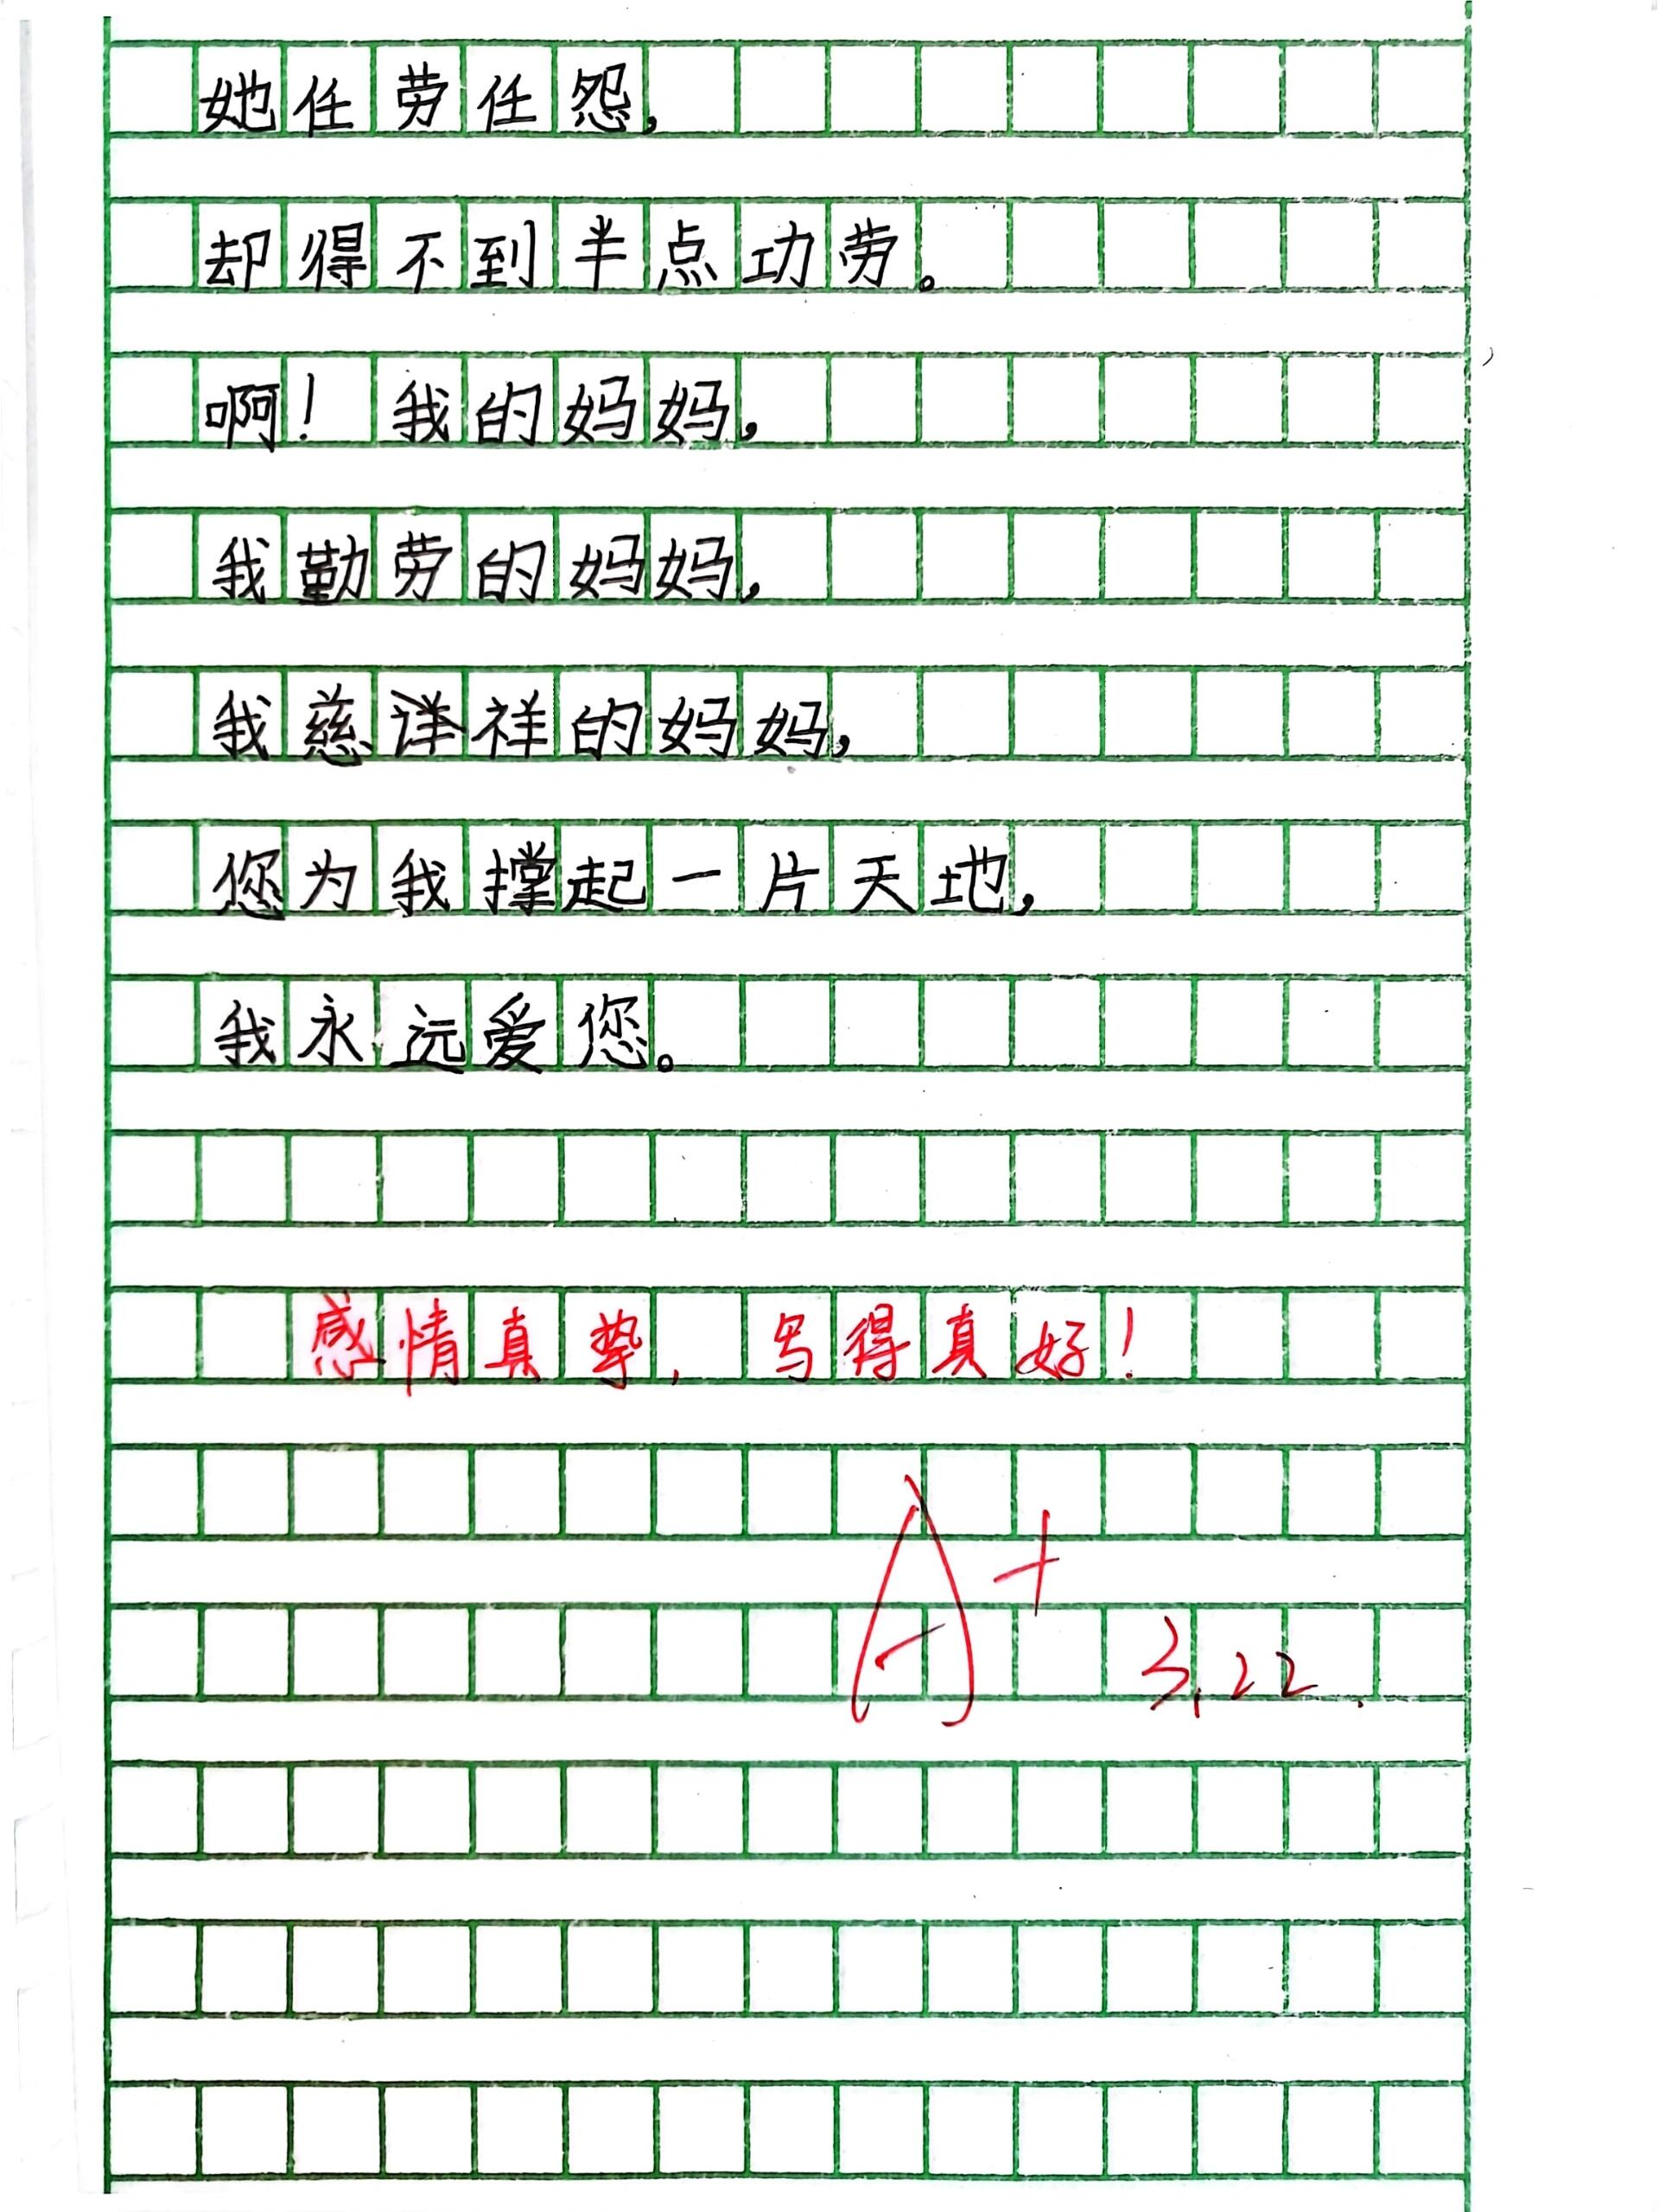 她任劳任怨，
却得不到半点功劳。
啊！我的妈妈，
我勤劳的妈妈，
我慈祥的妈妈，
您为我撑起一片天地，
我永远爱您。
感情真挚，写得真好！
A+
3.22.